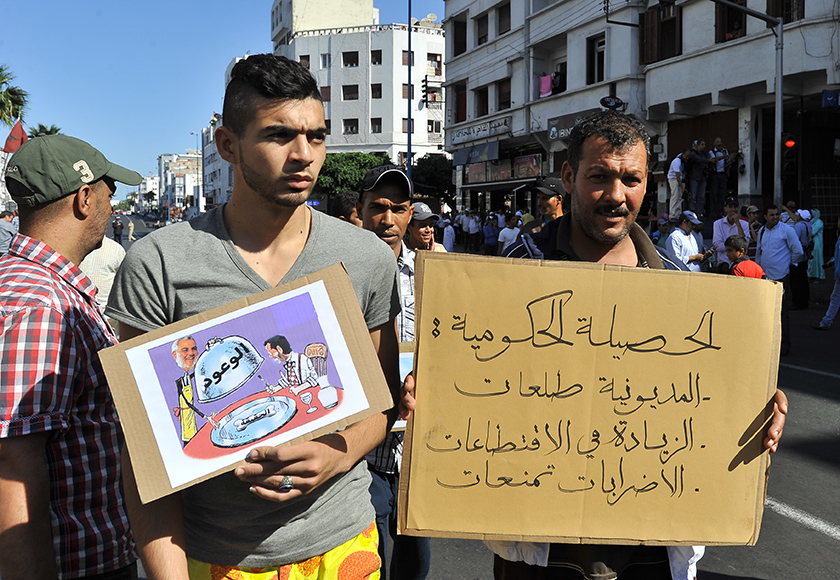 الحصيلة الحكومية :
- المديونية طلعات
- الزيادة في الاقتطاعات
- الاضرابات تمنعات
الوعود
الحصيلة
3